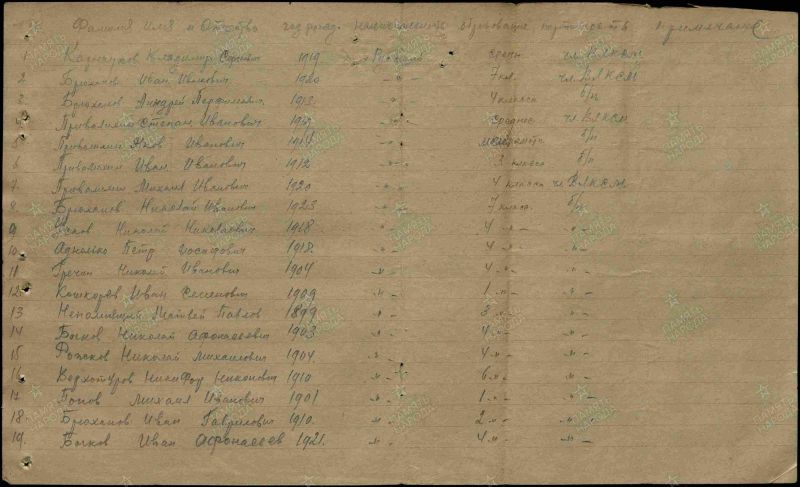 Фамилия Имя и Отчество год рожд. национальность образование партийность примечание
1 Владимир 1919 Русский средн чл. ВЛКСМ
2 Брюханов Иван Иванович 1920 -"- 7 кл. чл. ВЛКСМ
3 Брюханов Андрей 1913 -"- 4 класса б/п
4 Привалихин Степан Иванович -"- среднее чл. ВЛКСМ
5 Привалихин Яков Иванович 1914 -"- б/п
6 Привалихин Иван Иванович 1912 -"- 3 класса б/п
7 Привалихин Михаил Иванович 1920 -"- 4 класса чл. ВЛКСМ
8 Брюханов Николай Иванович 1923 -"- 7 класс. б/п
9 Усков Николай Николаевич 1918 -"- 4 -"- -"-
10 Петр Иосифович 1918 -"- 4 -"- -"-
11 Гречин Николай Иванович 1904 -"- 4 -"- -"-
12 Кошкарев Иван Семенович 1909 -"- 1 -"- -"-
13 Непомнящий Матвей Павлов 1899 -"- 3 -"- -"-
14 Бычков Николай Афонасевич 1903 -"- 4 -"- -"-
15 Рожков Николай Михаилович 1904 -"- 4 -"- -"-
16 Верхотуров Никифор 1910 -"- 6 -"- -"-
17 Попов Михаил Иванович 1901 -"- 1 -"- -"-
18. Брюханов Иван Гаврилович 1910. -"- 2 -"- -"-
19. Бычков Иван Афонасеев 1921. -"- 4 -"- -"-
ПАМЯТЬ НАРОДА